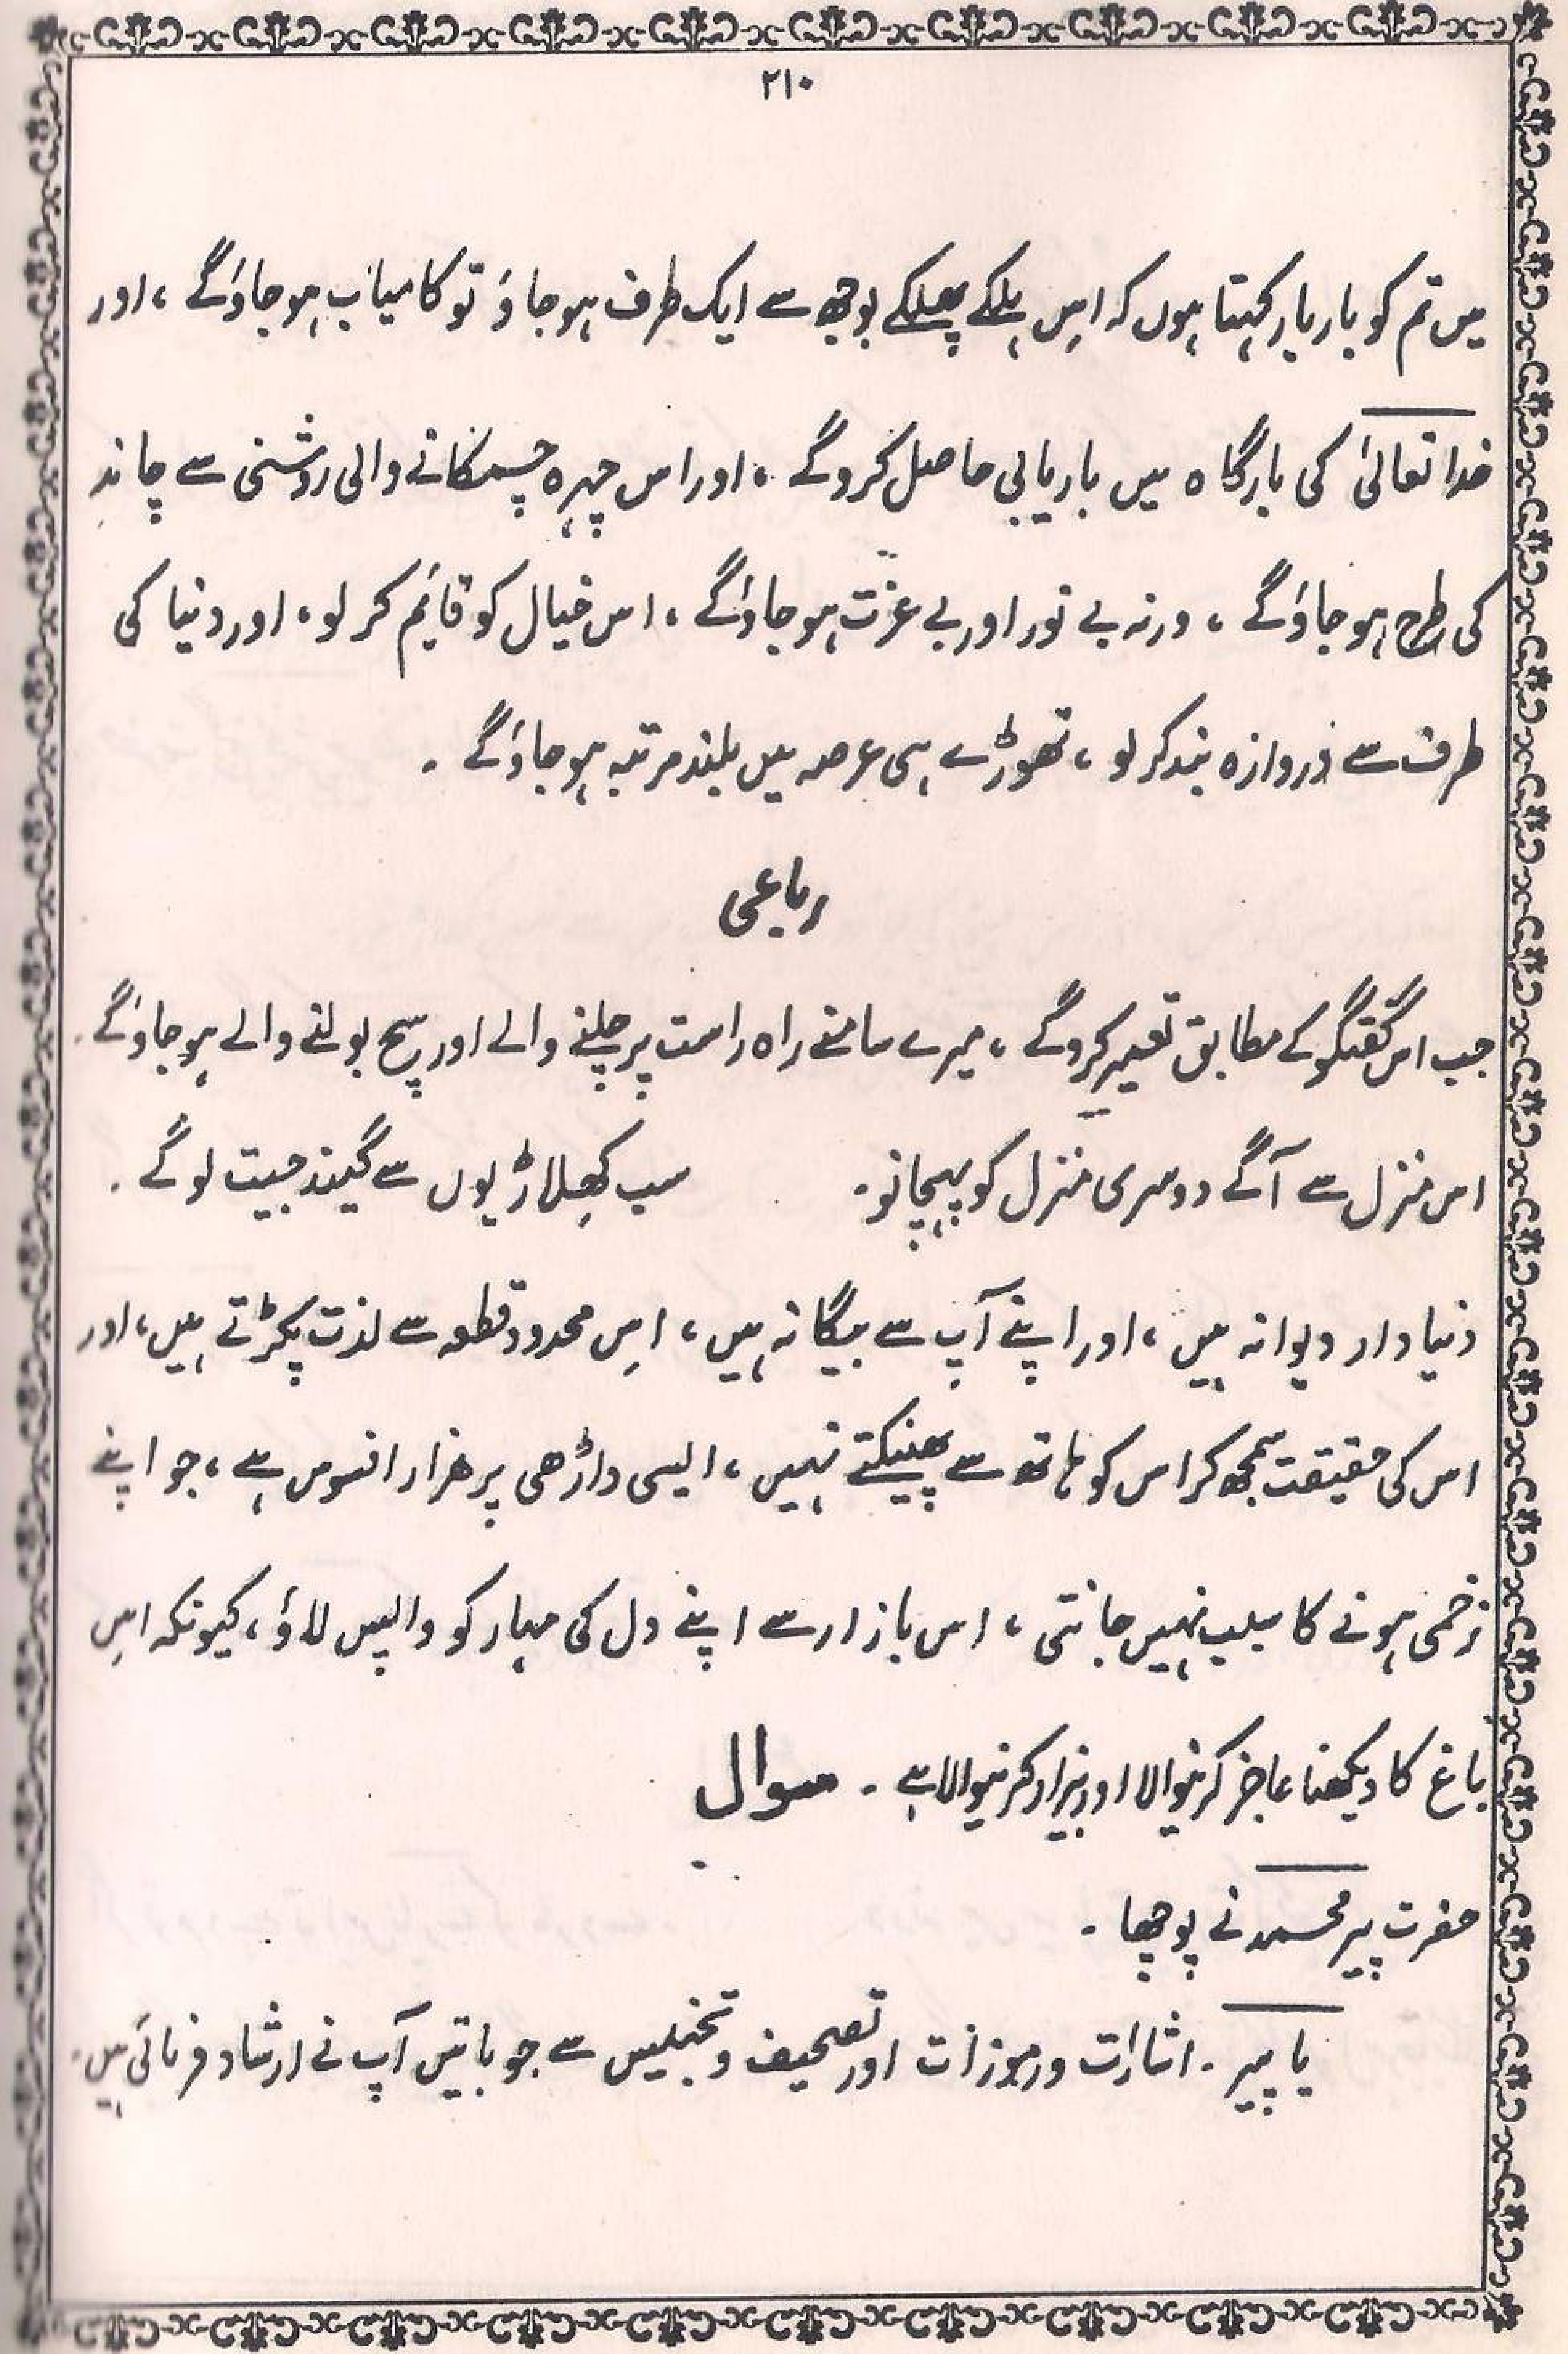 ۲۱۰
میں تم کو بار بار کہتا ہوں کہ اِس ہلکے پھلکے بوجھ سے ایک طرف ہو جاؤ تو کامیاب ہو جاؤگے ، اور
خدا تعالیٰ کی بارگاہ میں باریابی حاصل کروگے ، اور اس چہرہ چمکانے والی روشنی سے چاند
کی طرح ہو جاؤگے ، ورنہ بے نور اور بے عزت ہو جاؤگے ، اس خیال کو قائم کر لو ، اور دنیا کی
طرف سے دروازہ بند کر لو ، تھوڑے ہی عرصہ میں بلند مرتبہ ہو جاؤگے ۔
رباعی
جب اس گفتگو کے مطابق تعمیر کروگے ، میرے سامنے راہ راست پر چلنے والے اور سچ بولنے والے ہو جاؤگے ۔
اس منزل سے آگے دوسری منزل کو پہچانو ۔ سب کھِلاڑیوں سے گیند جیت لوگے ۔
دنیا دار دیوانہ ہیں ، اور اپنے آپ سے بیگانہ ہیں ، اِس محدود قطعہ سے لذت پکڑتے ہیں ، اور
اس کی حقیقت سمجھ کر اس کو ہاتھ سے پھینکتے نہیں ، ایسی داڑھی پر ہزار افسوس ہے ، جو اپنے
زخمی ہونے کا سبب نہیں جانتی ، اس بازار سے اپنے دل کی مہار کو واپس لاؤ ، کیونکہ اِس
باغ کا دیکھنا عاجز کرنیوالا اور بیزار کرنیوالا ہے ۔ سوال
حضرت پیر محمد نے پوچھا ۔
یا پیر ۔ اشارات و رموزات اور تصحیف و تجنیس سے جو باتیں آپ نے ارشاد فرمائی ہیں ۔